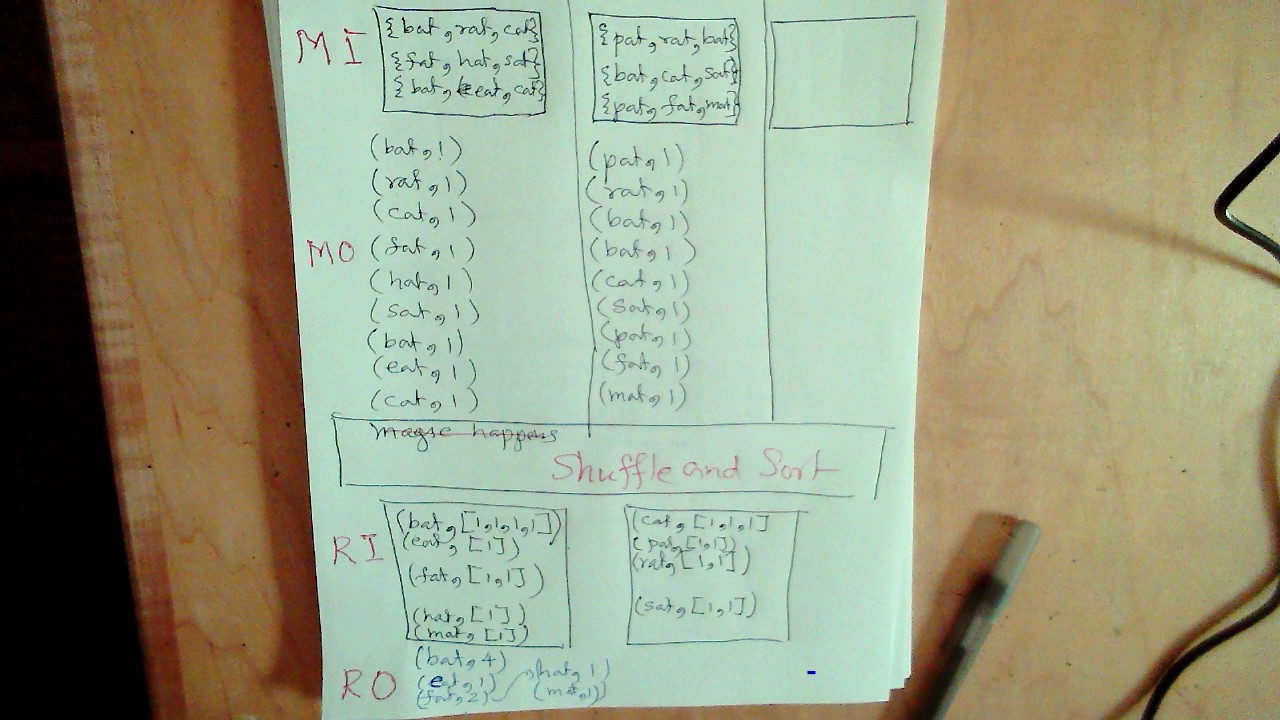 MI
{bat, rat, cat}
{fat, hat, sat}
{bat, eat, cat}
{pat, rat, bat}
{bat, cat, sat}
{pat, fat, mat}
MO
(bat, 1)
(rat, 1)
(cat, 1)
(fat, 1)
(hat, 1)
(sat, 1)
(bat, 1)
(eat, 1)
(cat, 1)
(pat, 1)
(rat, 1)
(bat, 1)
(bat, 1)
(cat, 1)
(sat, 1)
(pat, 1)
(fat, 1)
(mat, 1)
happens
Shuffle and Sort
RI
(bat, [1,1,1,1])
(eat, [1])
(fat, [1,1])
(hat, [1])
(mat, [1])
(cat, [1,1,1]
(pat, [1,1])
(rat, [1,1])
(sat, [1,1])
RO
(bat, 4)
(eat, 1)
(fat, 2)
(hat, 1)
(mat, 1)